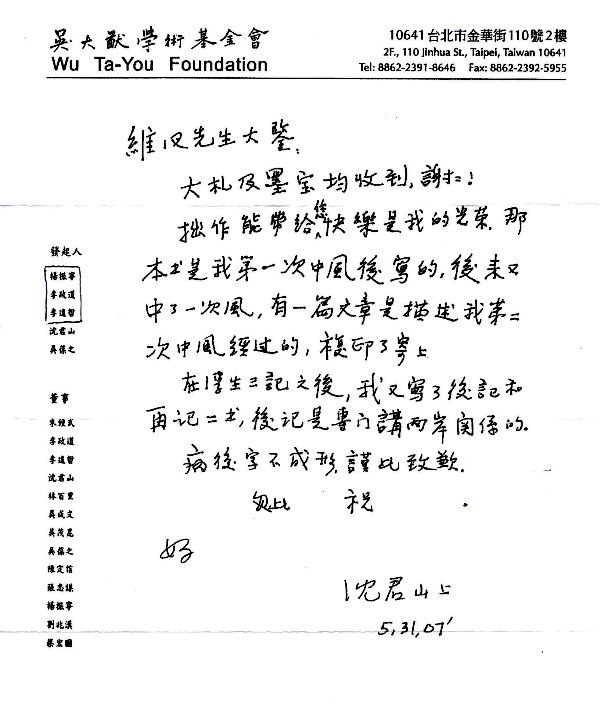 吳大猷學術基金會
Wu Ta-You Foundation
10641台北市金華街110號2樓
2F., 110 Jinhua St., Taipei, Taiwan 10641
Tel: 8862-2391-8646 Fax: 8862-2392-5955
維 先生大鑒:
大札及墨宝均收到,謝=!
拙作能帶給您快樂是我的光荣.那
本书是我第一次中風後寫的,後来又
中了一次風,有一篇文章是描述我第二
次中風經过的,複印了寄上
在浮生三記之後,我又寫了後記和
再记二书,後记是専门講两岸関係的.
病後字不成形,謹此致歉.
匆此 祝
好
沈君山上
5,31,07'
發起人
楊振寧
李政道
李遠哲
沈君山
吳保之
董事
朱經武
李政道
李遠哲
沈君山
林百里
吳成文
吳茂昆
吳保之
陳定信
張忠謀
楊振寧
劉兆漢
蔡宏圖